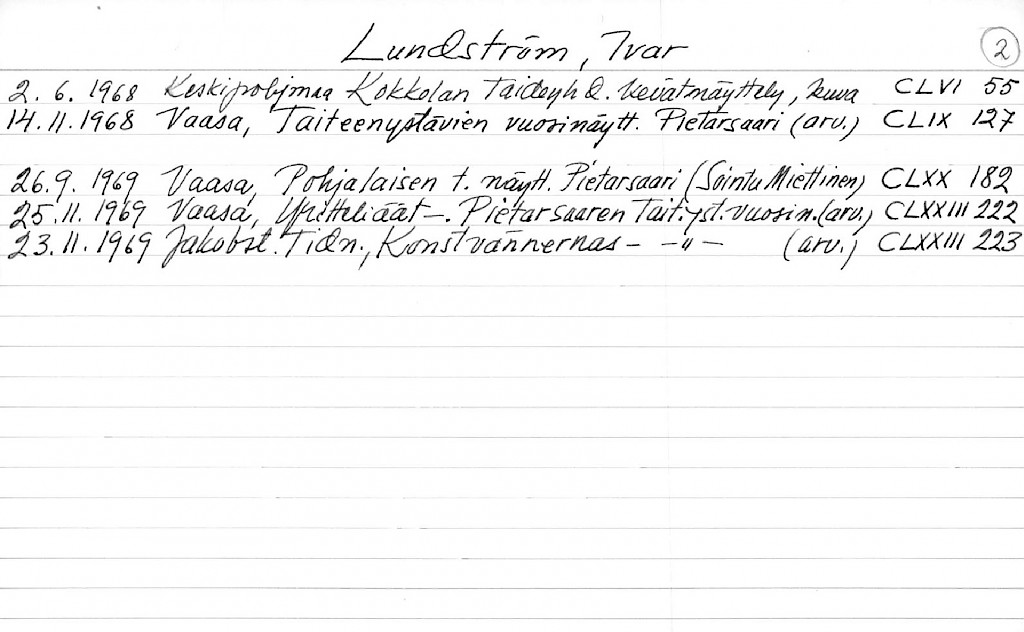 Lundström, Ivar 2
2. 6. 1968 Keskipohjmaa Kokkolan Taideyhd. kevätnäyttely, kuva CLVI 55
14. 11. 1968 Vaasa, Taiteenystävien vuosinäytt. Pietarsaari (arv.) CLIX 127
26. 9. 1969 Vaasa, Pohjalaisen t. näytt. Pietarsaari (Sointu Miettinen) CLXX 182
25. 11. 1969 Vaasa, Yritteliäät —. Pietarsaaren Tait.yst. vuosin. (arv.) CLXXIII 222
23. 11. 1969 Jakobst. Tidn., Konstvännernas — —"— (arv.) CLXXIII 223